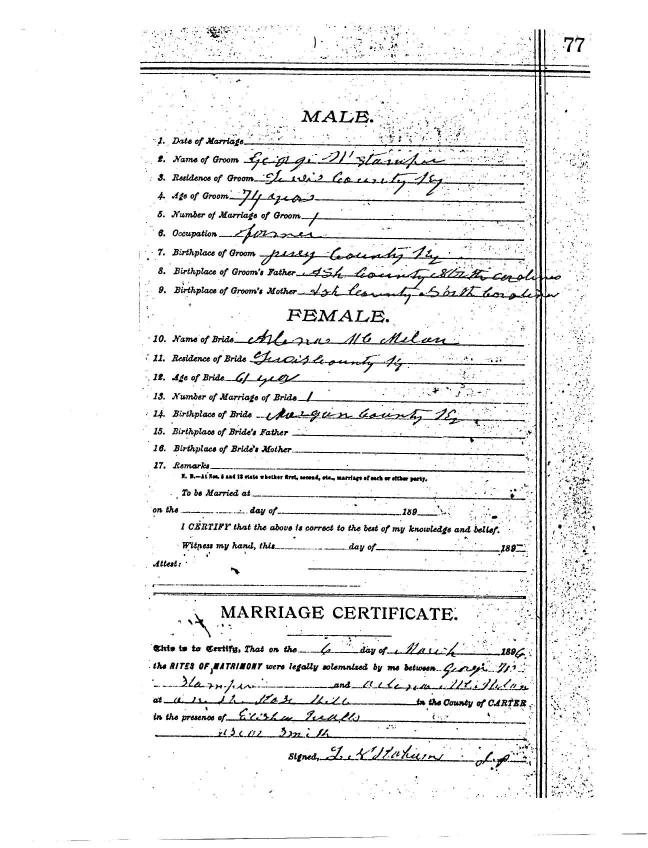 77
MALE.
1. Date of Marriage
2. Name of Groom George W Stamper
3. Residence of Groom Lewis County Ky
4. Age of Groom 74 years
5. Number of Marriage of Groom 1
6. Occupation Farmer
7. Birthplace of Groom County Ky
8. Birthplace of Groom's Father Ash County North
9. Birthplace of Groom's Mother Ash County North
FEMALE.
10. Name of Bride
11. Residence of Bride County Ky
12. Age of Bride 61 year
13. Number of Marriage of Bride 1
14. Birthplace of Bride Morgan County Ky
15. Birthplace of Bride's Father
16. Birthplace of Bride's Mother
17. Remarks
N. B.—At Nos. 5 and 13 state whether first, second, etc., marriage of each or either party.
To be Married at
on the day of 189
I CERTIFY that the above is correct to the best of my knowledge and belief.
Witness my hand, this day of 189
Attest:
MARRIAGE CERTIFICATE.
This is to Certify, That on the 6 day of March 1896
the RITES OF MATRIMONY were legally solemnized by me between George W
Stamper and
at in the County of CARTER
in the presence of Elisha
Smith
Signed,